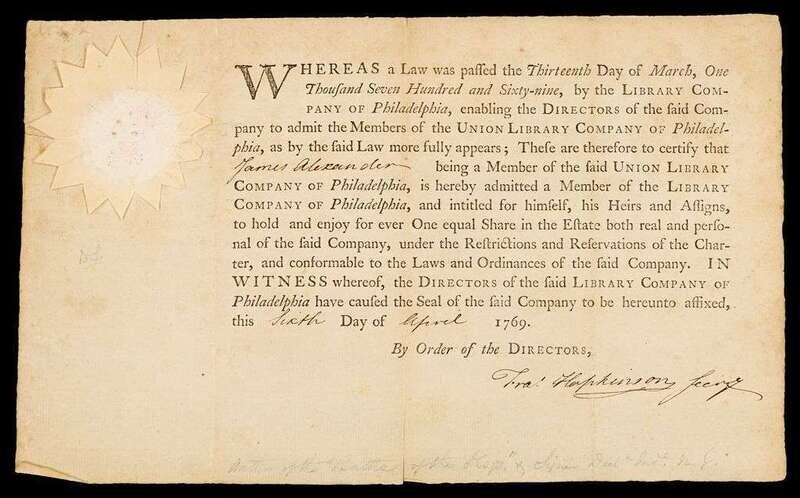 WHEREAS a Law was paſſed the Thirteenth Day of March, One
Thouſand Seven Hundred and Sixty-nine, by the LIBRARY COM-
PANY OF Philadelphia, enabling the DIRECTORS of the ſaid Com-
pany to admit the Members of the UNION LIBRARY COMPANY OF Philadel-
phia, as by the ſaid Law more fully appears; Theſe are therefore to certify that
James Alexander being a Member of the ſaid UNION LIBRARY
COMPANY OF Philadelphia, is hereby admitted a Member of the LIBRARY
COMPANY OF Philadelphia, and intitled for himſelf, his Heirs and Aſſigns,
to hold and enjoy for ever One equal Share in the Eſtate both real and perſo-
nal of the ſaid Company, under the Reſtrictions and Reſervations of the Char-
ter, and conformable to the Laws and Ordinances of the ſaid Company. IN
WITNESS whereof, the DIRECTORS of the ſaid LIBRARY COMPANY OF
Philadelphia have cauſed the Seal of the ſaid Company to be hereunto affixed,
this Sixth Day of April 1769.
By Order of the DIRECTORS,
Fra! Hopkinson Secry
of the &